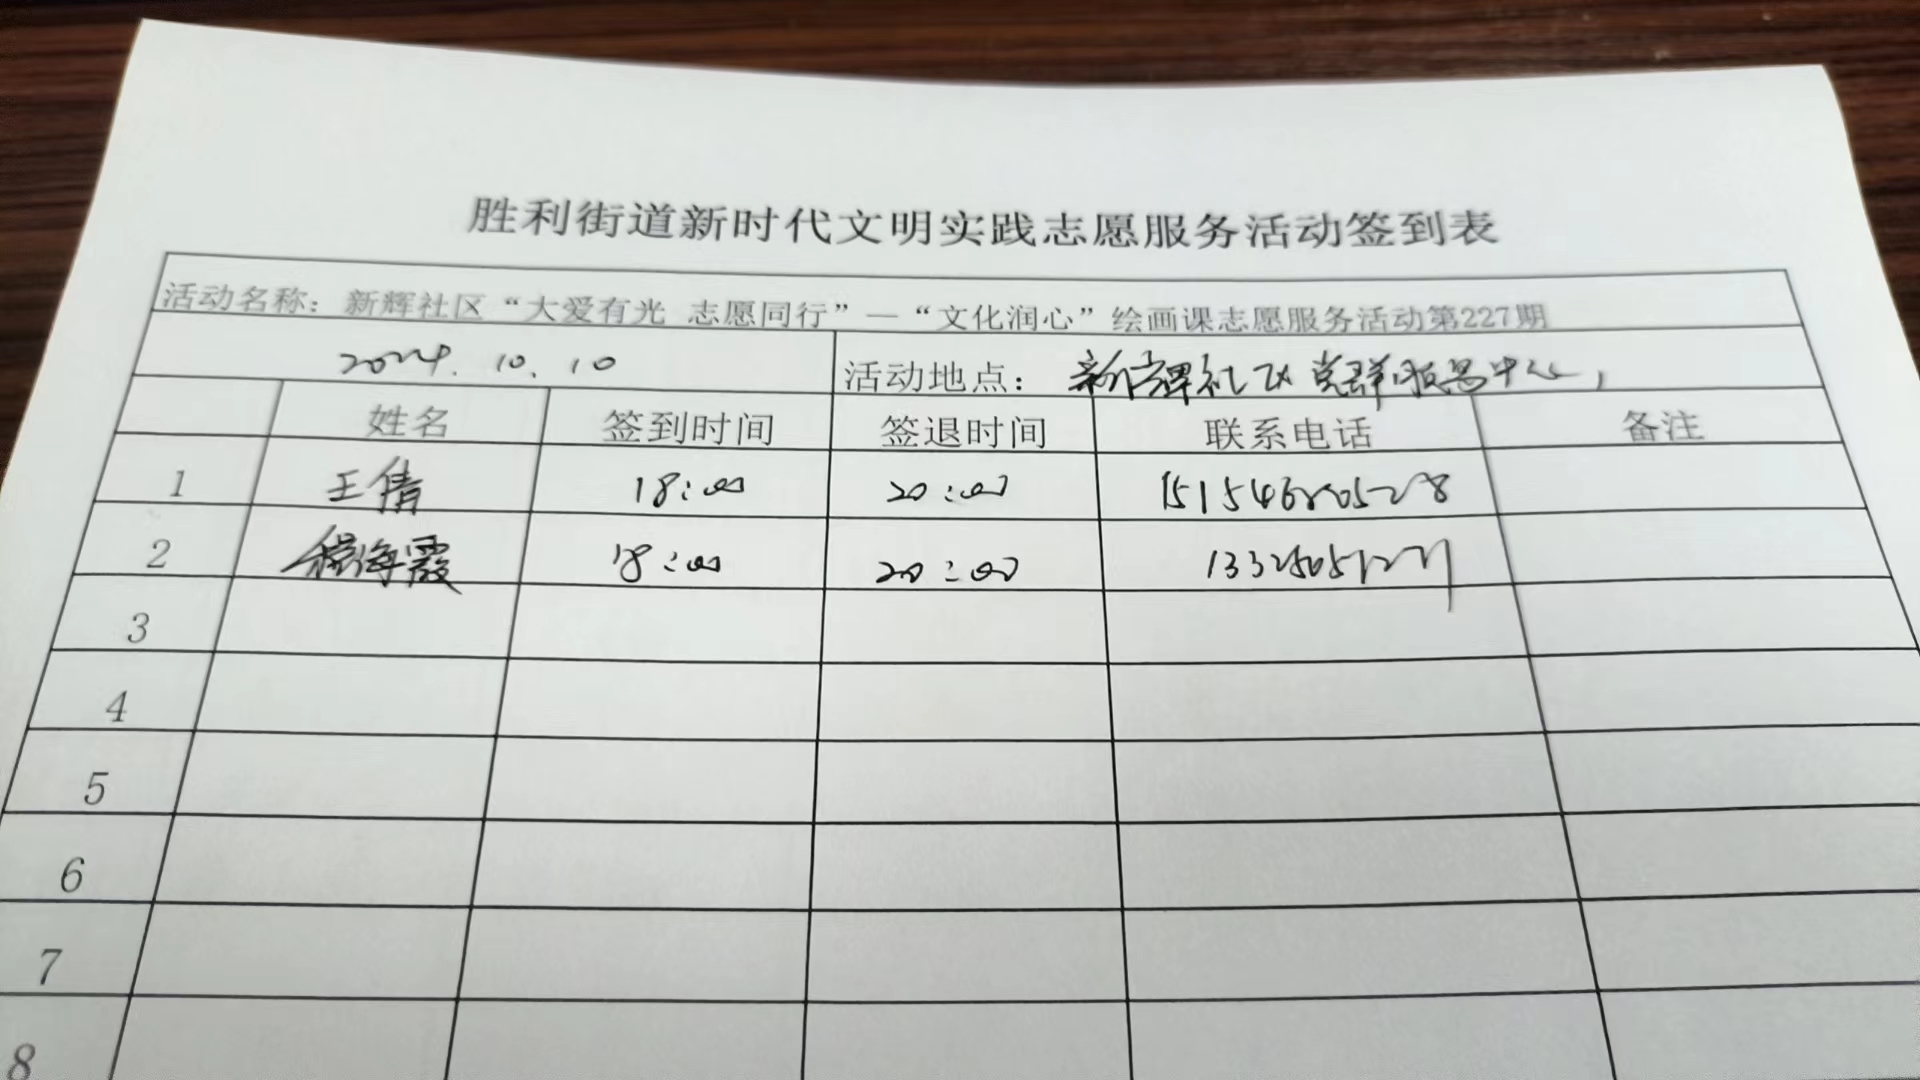 胜利街道新时代文明实践志愿服务活动签到表
活动名称：新辉社区“大爱有光 志愿同行”—“文化润心”绘画课志愿服务活动第227期
2024.10.10 活动地点：新辉社区党群服务中心
姓名 签到时间 签退时间 联系电话 备注
1 王倩 18:00 20:00
2 程海霞 18:00 20:00
3
4
5
6
7
8